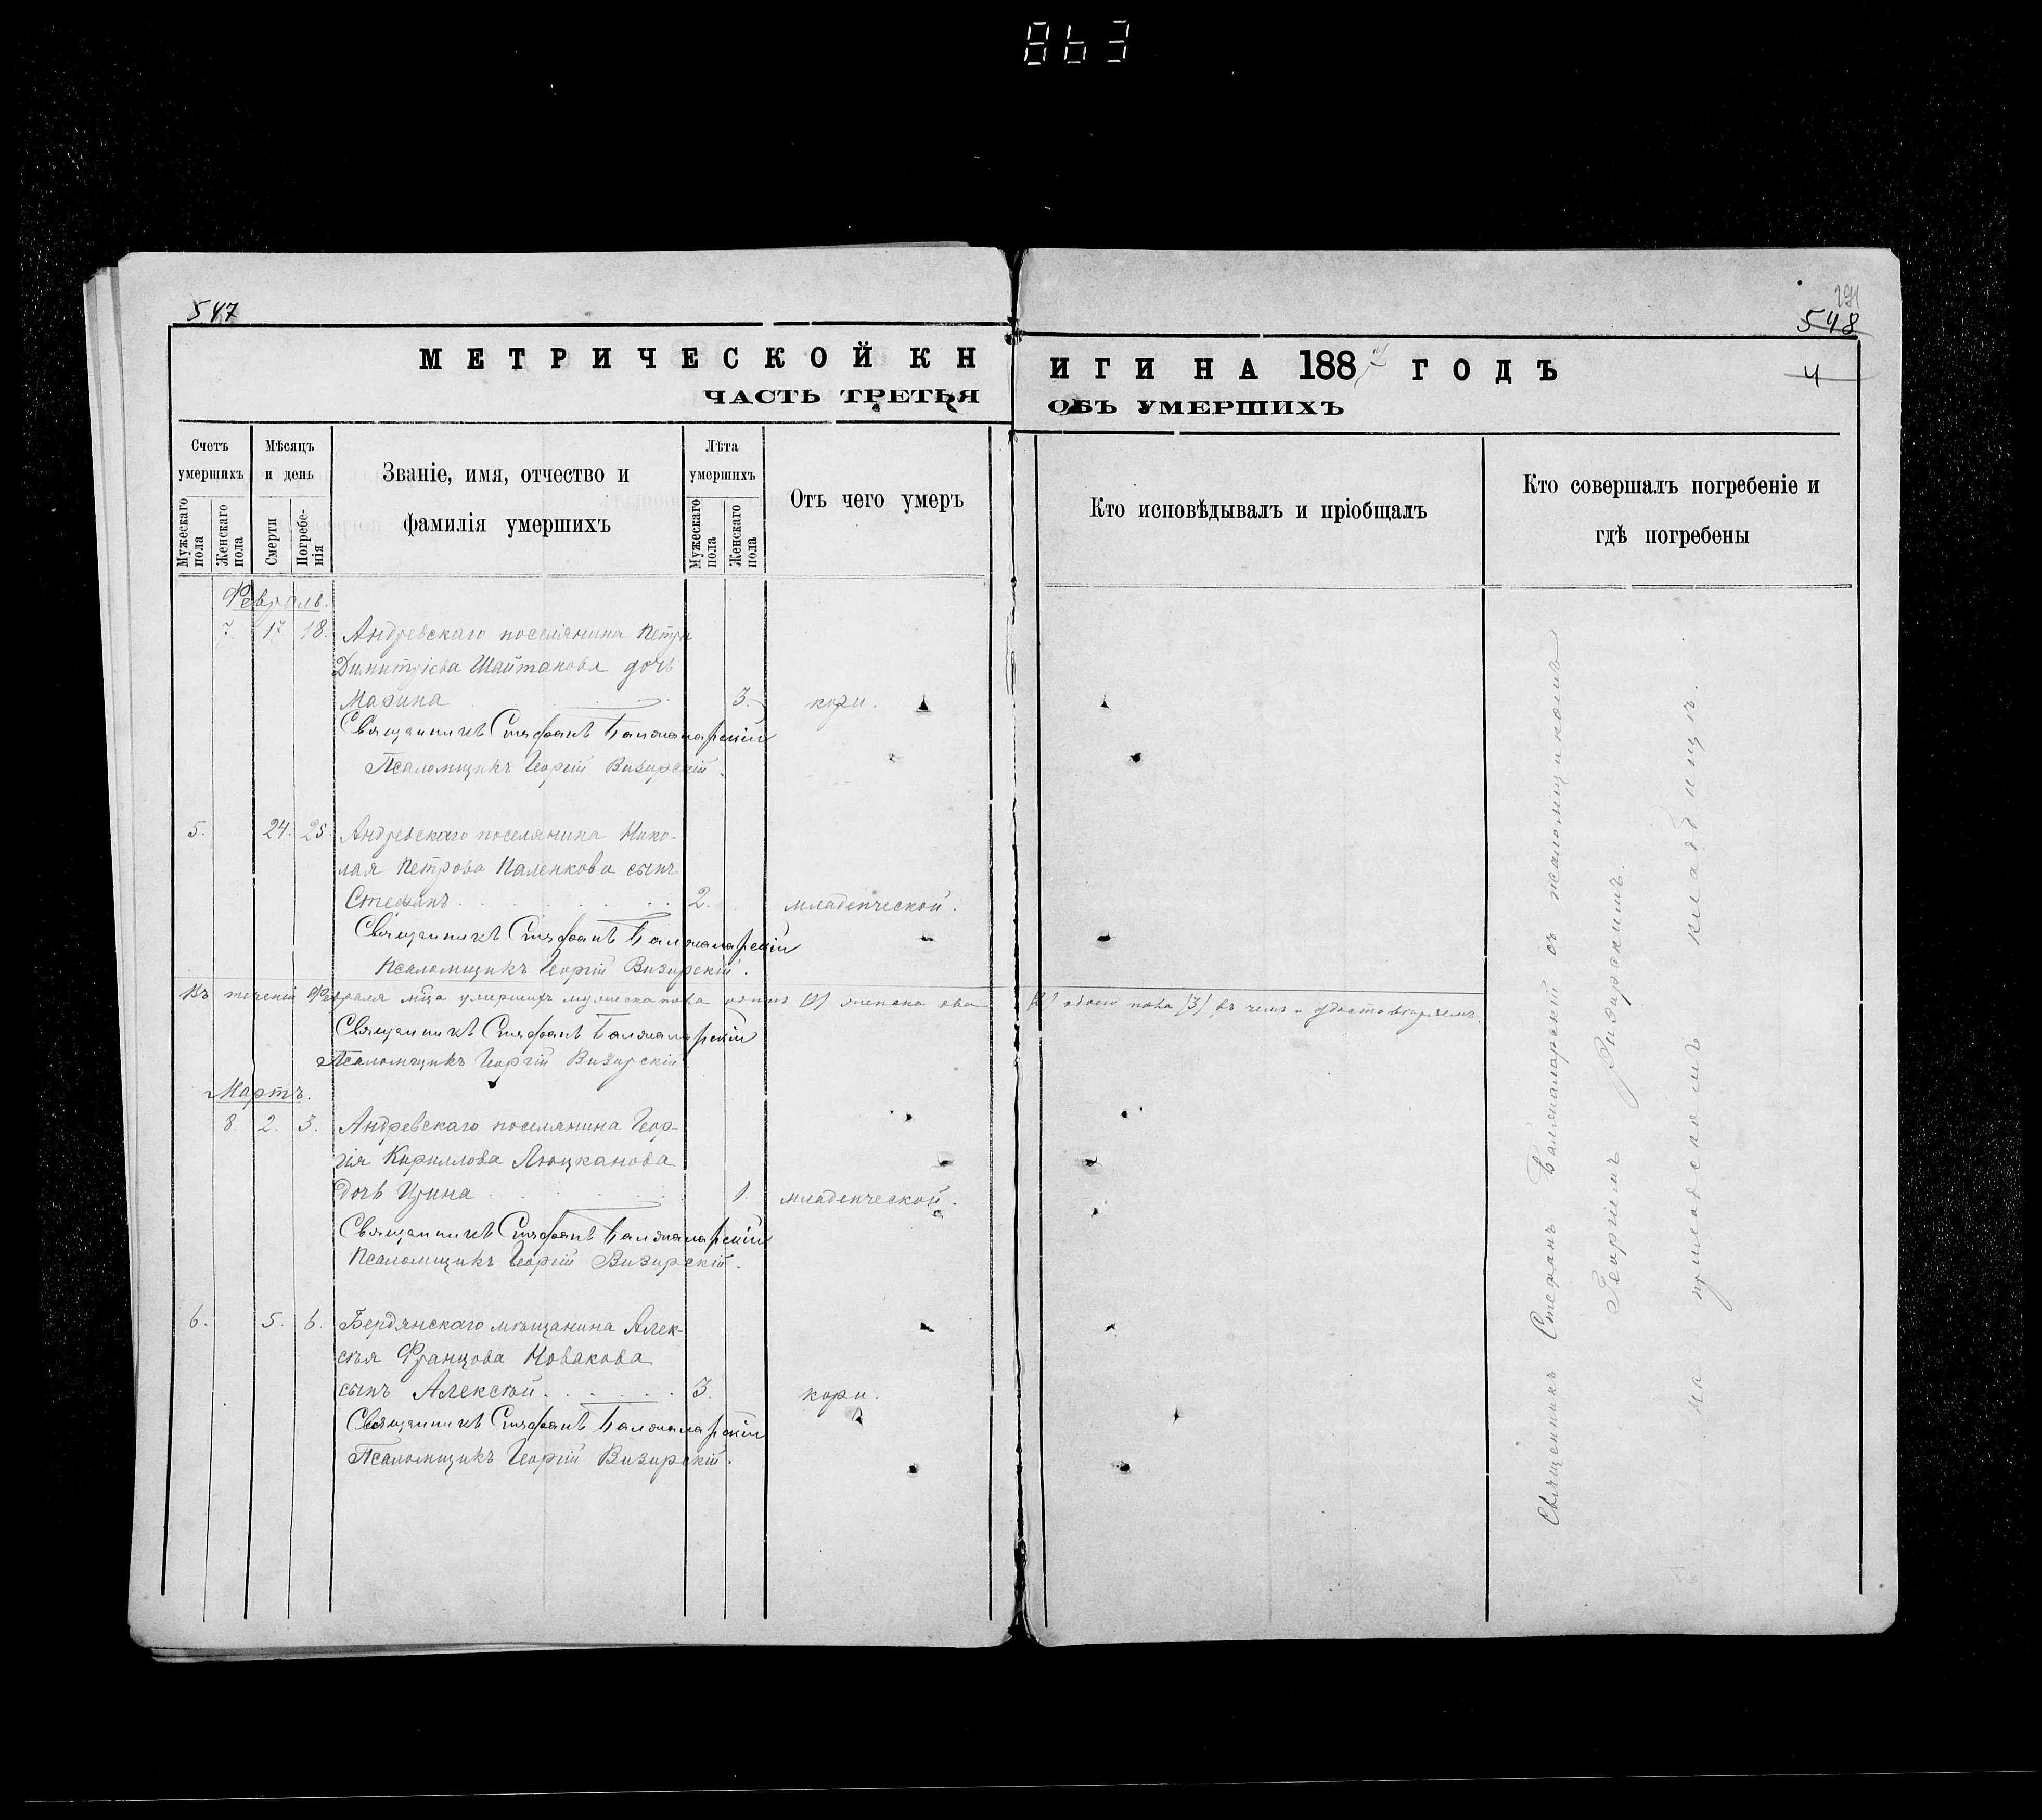 863
547
МЕТРИЧЕСКОЙ КН
ЧАСТЬ ТРЕТЬЯ
Счетъ умершихъ
Мужескаго пола
Женскаго пола
Мѣсяцъ и день
Смерти
Погребенія
Званіе, имя, отчество и
фамилія умершихъ
Лѣта умершихъ
Мужескаго пола
Женскаго пола
Отъ чего умеръ
Февраль.
7 17 18. Андревскаго поселянина Петра
Димитріева Шайтанова дочь
Марина 3. кори.
Священникъ Стефанъ
Псаломщикъ Георгій Визирскій.
5. 24. 25. Андревскаго поселянина Нико-
лая Петрова Паленкова сынъ
Стефанъ 2. младенческой.
Священникъ Стефанъ
Псаломщикъ Георгій Визирскій.
Въ теченіи Февраля мца умершихъ мужеска пола одинъ (1) женска два
Священникъ Стефанъ
Псаломщикъ Георгій Визирскій
Мартъ.
8. 2. 3. Андревскаго поселянина Геор-
гія Кириллова Люцканова
дочь Ирина 1. младенческой.
Священникъ Стефанъ
Псаломщикъ Георгій Визирскій.
6. 5. 6. Бердянскаго мѣщанина Алек-
сѣя Францова Новакова
сынъ Алексѣй 3. кори.
Священникъ Стефанъ
Псаломщикъ Георгій Визирскій.
191
548
4
ИГИ НА 1887 ГОДЪ
ОБЪ УМЕРШИХЪ
Кто исповѣдывалъ и пріобщалъ
Кто совершалъ погребеніе и
гдѣ погребены
(2) обоего пола (3), въ чемъ и удостовѣряемъ.
Священникъ Стефанъ съ псаломщикомъ
Георгіемъ Визирскимъ.
на приходскомъ кладбищѣ.